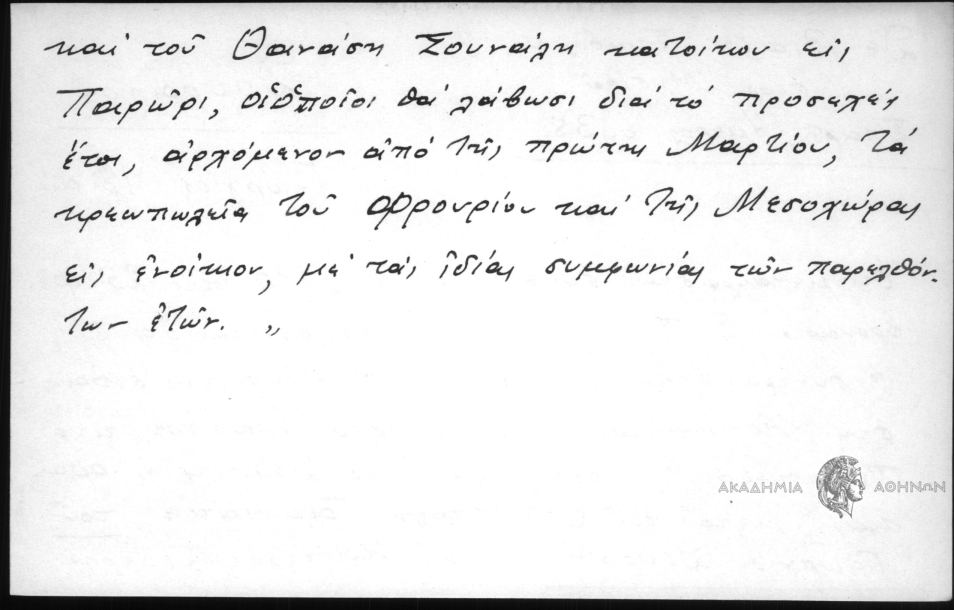 καὶ τοῦ Θανάση Σουνάλη κατοίκου εἰς
Παρῶρι, οἱ ὁποῖοι θὰ λάβωσι διὰ τὸ προσεχὲς
ἔτος, ἀρχόμενον ἀπὸ τῆς πρώτης Μαρτίου, τὰ
κρεωπωλεῖα τοῦ Φρουρίου καὶ τῆς Μεσοχώρας
εἰς ἐνοίκιον, μὲ τὰς ἰδίας συμφωνίας τῶν παρελθόν-
των ἐτῶν. "
ΑΚΑΔΗΜΙΑ ΑΘΗΝΩΝ